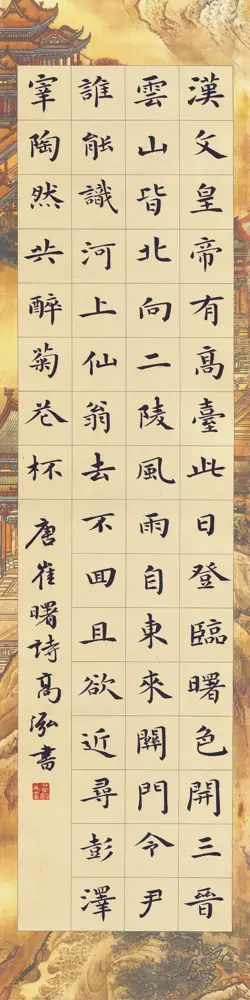 漢文皇帝有髙臺此日登臨曙色開三晉
雲山皆北向二陵風雨自東來關門令尹
誰能識河上仙翁去不回且欲近尋彭澤
宰陶然共醉菊花杯
唐崔曙詩髙泓書